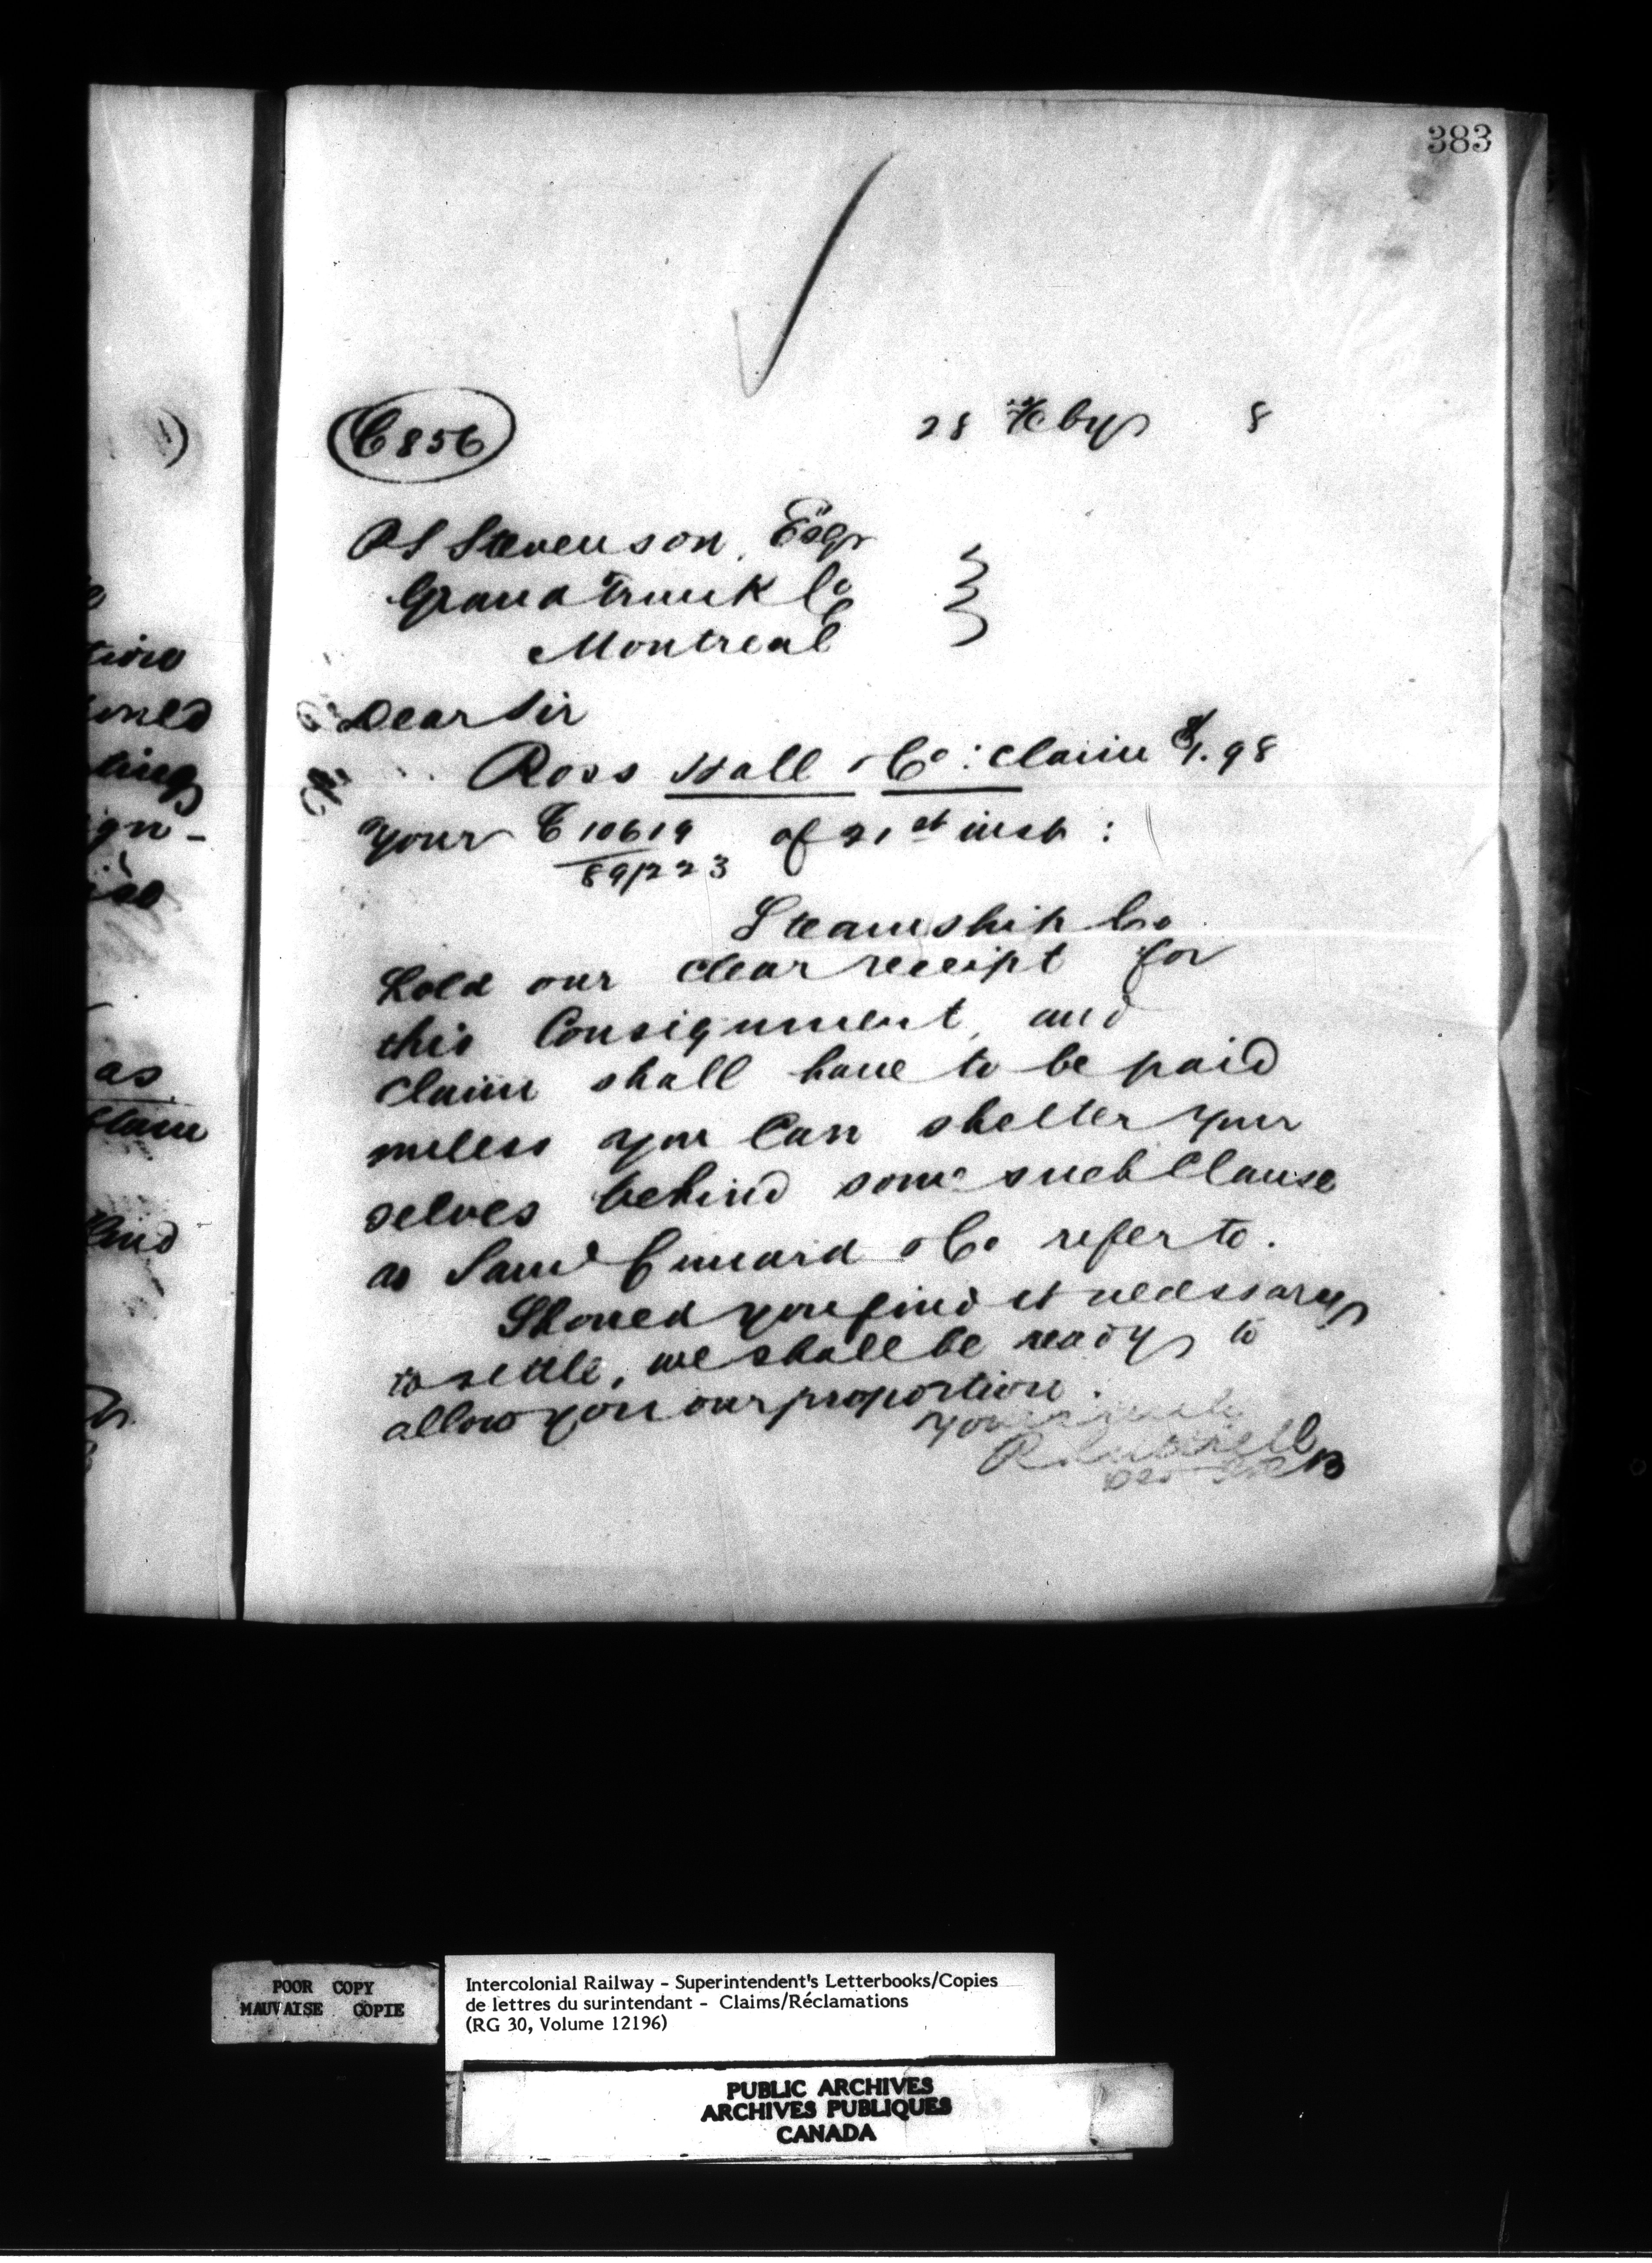 383
C 856
28 Feby 8
P S Stevenson, Esqr
Grand Trunk Co
Montreal
Dear Sir
Ross Hall & Co: Claim $1.98
Your C 10619 of 21st inst:
89/223
Steamship Co
hold our clear receipt for
this Consignment, and
claim shall have to be paid
unless you Can shelter your
selves behind some such Clause
as Saml Cunard & Co refer to.
Should you find it necessary
to settle, we shall be ready to
allow you our proportion.
Yours truly
B
as
POOR COPY
MAUVAISE COPIE
Intercolonial Railway - Superintendent's Letterbooks/Copies
de lettres du surintendant - Claims/Réclamations
(RG 30, Volume 12196)
PUBLIC ARCHIVES
ARCHIVES PUBLIQUES
CANADA